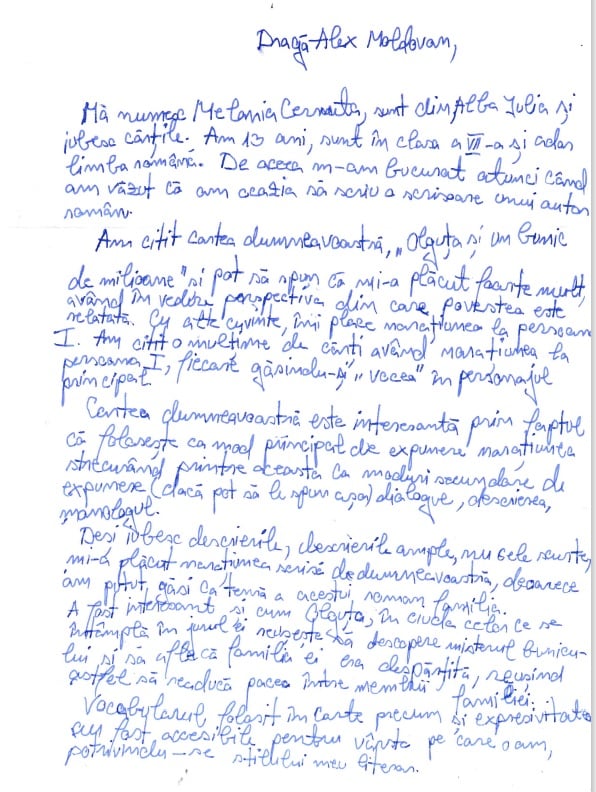 Dragă Alex Moldovan,
Mă numesc Melania Cernuta, sunt din Alba Iulia și
iubesc cărțile. Am 13 ani, sunt în clasa a VII-a și ador
limba română. De aceea m-am bucurat atunci când
am văzut că am ocazia să scriu o scrisoare unui autor
român.
Am citit cartea dumneavoastră, „Olguța și un bunic
de milioane" și pot să spun că mi-a plăcut foarte mult,
având în vedere perspectiva din care povestea este
relatată. Cu alte cuvinte, îmi place narațiunea la persoana
I. Am citit o mulțime de cărți având narațiunea la
persoana I, fiecare găsindu-și „vocea" în personajul
principal.
Cartea dumneavoastră este interesantă prin faptul
că folosește ca mod principal de expunere narațiunea
strecurând printre aceasta ca moduri secundare de
expunere (dacă pot să le spun așa) dialogue, descrierea,
monologul.
Deși iubesc descrierile, descrierile ample, nu cele scurte,
mi-a plăcut narațiunea scrisă de dumneavoastră, deoarece
am putut găsi ca temă a acestui roman familia.
A fost interesant și cum Olguța, în ciuda celor ce se
întâmplă în jurul ei reușește să descopere misterul bunicu-
lui și să afle că familia ei era despărțită, reușind
astfel să readucă pacea între membrii familiei.
Vocabularul folosit în carte precum și expresivitatea
au fost accesibile pentru vârsta pe care o am,
potrivindu-se stilului meu literar.